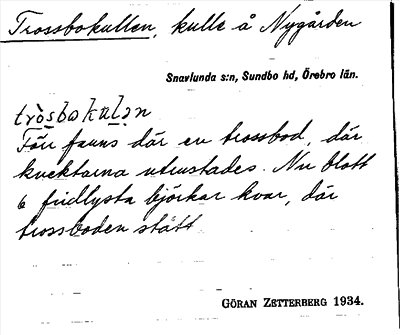 Trossbokullen, kulle å Nygården
Snavlunda s:n, Sundbo hd, Örebro län.
Förr fanns där en trossbod, där
knektarna utrustades. Nu blott
6 fridlysta björkar kvar, där
trossboden stått.
GÖRAN ZETTERBERG 1934.